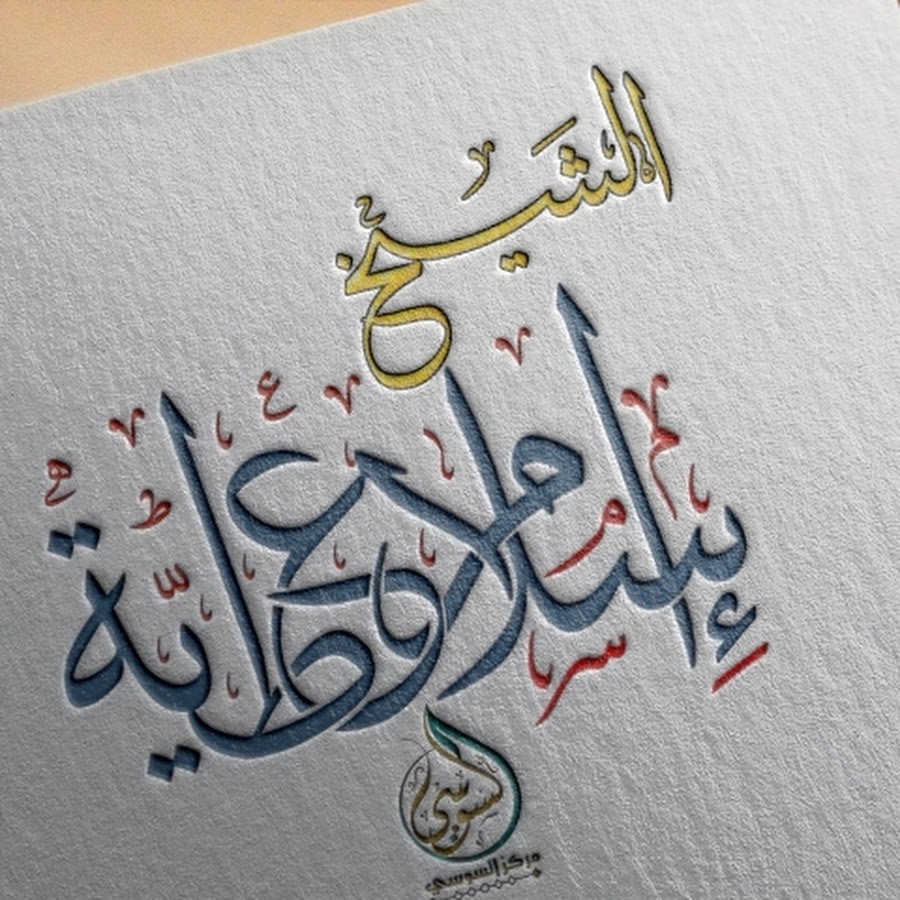 الشيخ
إسلام علاوطية
السوسي
مركز السوسي